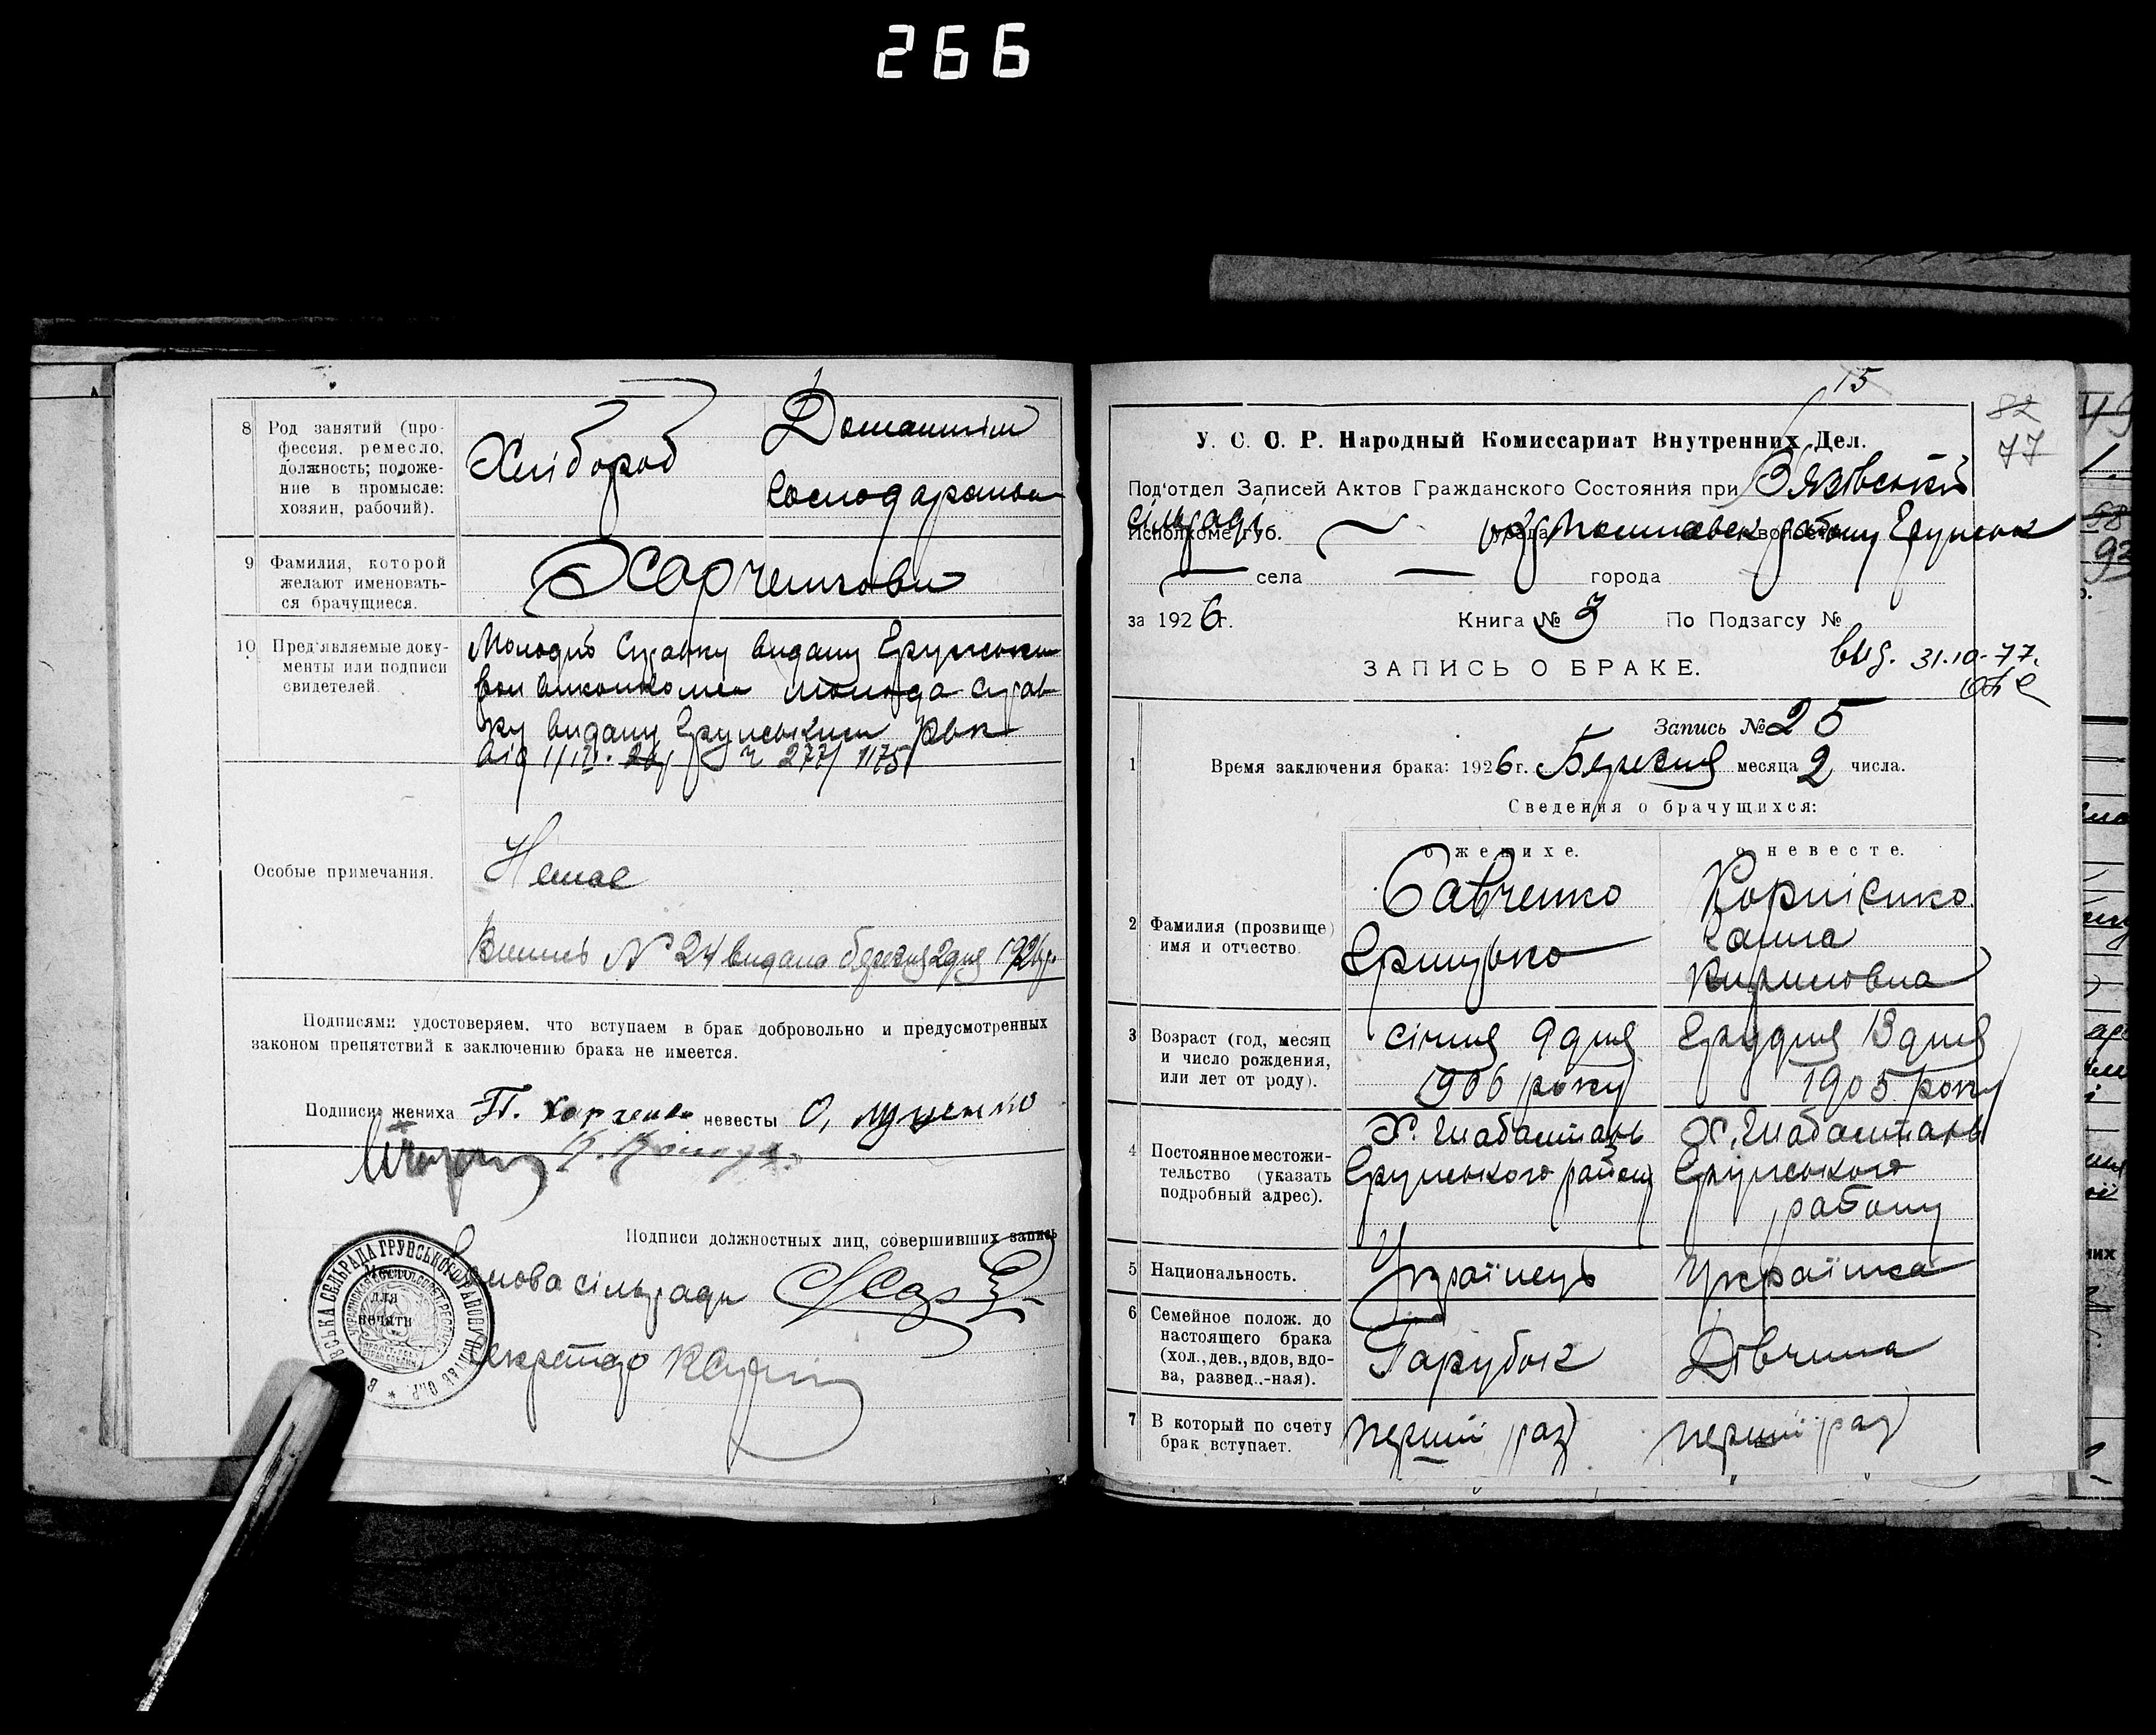 266
8 Род занятий (про-
фессия, ремесло,
должность; положе-
ние в промысле:
хозяин, рабочий).
Хлібороб
Домашнім
господарством
9 Фамилия, которой
желают именовать-
ся брачущиеся.
Харченкови
10 Пред'являемые доку-
менты или подписи
свидетелей.
Молодий справку видану
справ-
ку видану Грунським РВК
від
ч 277/1175
Особые примечания.
Немає
Випись № 24 видано березня 2 дня 1926 р.
Подписями удостоверяем, что вступаем в брак добровольно и предусмотренных
законом препятствий к заключению брака не имеется.
Подписи: жениха П. Харченко невесты О, Луценко
Подписи должностных лиц, совершивших запись
Голова сільради
Секретар
Место
для
печати
15
82
77
У. С. С. Р. Народный Комиссариат Внутренних Дел.
Под'отдел Записей Актов Гражданского Состояния при В'язівській
сільраді
Исполкоме губ.
села города
за 1926 г. Книга № 3 По Подзагсу №
ЗАПИСЬ О БРАКЕ.
выд. 31.10-77.
Запись № 25
1 Время заключения брака: 1926 г. Березня месяца 2 числа.
Сведения о брачущихся:
о женихе. о невесте.
2 Фамилия (прозвище)
имя и отчество.
Савченко
Грицько
Корнієнко
Ганна
Кириловна
3 Возраст (год, месяц
и число рождения,
или лет от роду).
січня 9 дня
1906 року
Грудня 13 дня
1905 року
4 Постоянное местожи-
тельство (указать
подробный адрес).
Х. Шабаштань
Грунського району
Х. Шабаштань
Грунського
району
5 Национальность.
Українець
Українка
6 Семейное полож. до
настоящего брака
(хол., дев., вдов, вдо-
ва, развед.-ная).
Парубок
Дівчина
7 В который по счету
брак вступает.
перший раз
перший раз